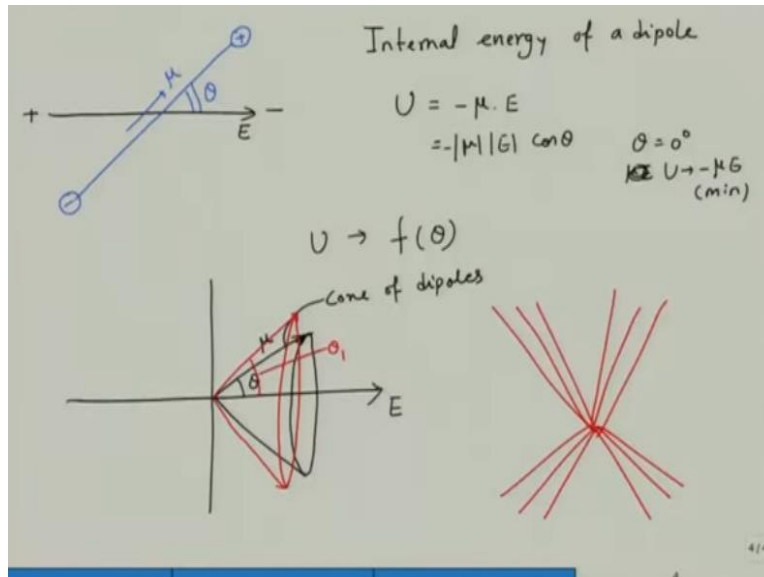 Internal energy of a dipole
+
μ
θ
+
E
-
-
U = -μ. E
= -|μ| |E| cosθ
θ = 0°
U → -μE
(min)
U → f(θ)
cone of dipoles
μ
θ₁
θ
E